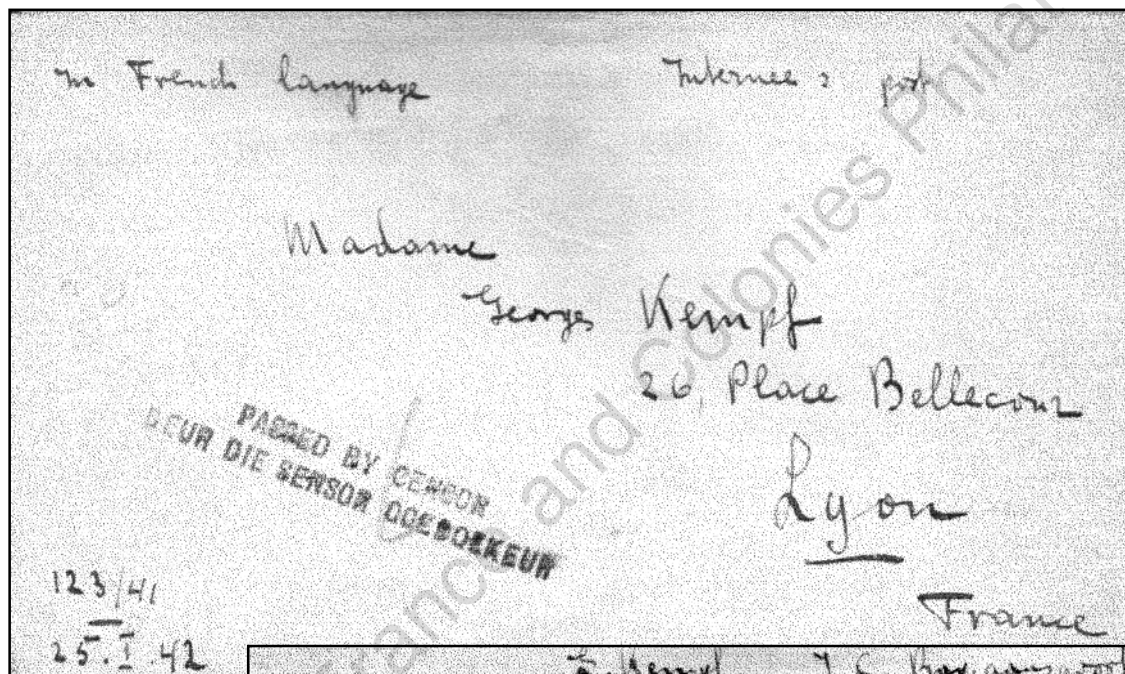 In French language
Internee's post
Madame
Georges Kempf
26, Place Bellecour
Lyon
France
PASSED BY CENSOR
DEUR DIE SENSOR GOEDGEKEUR
123/41
25.I.42
Kempf
France and Colonies